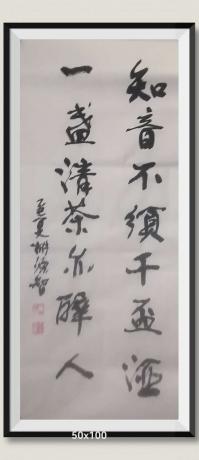 知音不须千盃酒
一盏清茶亦醉人
50x100